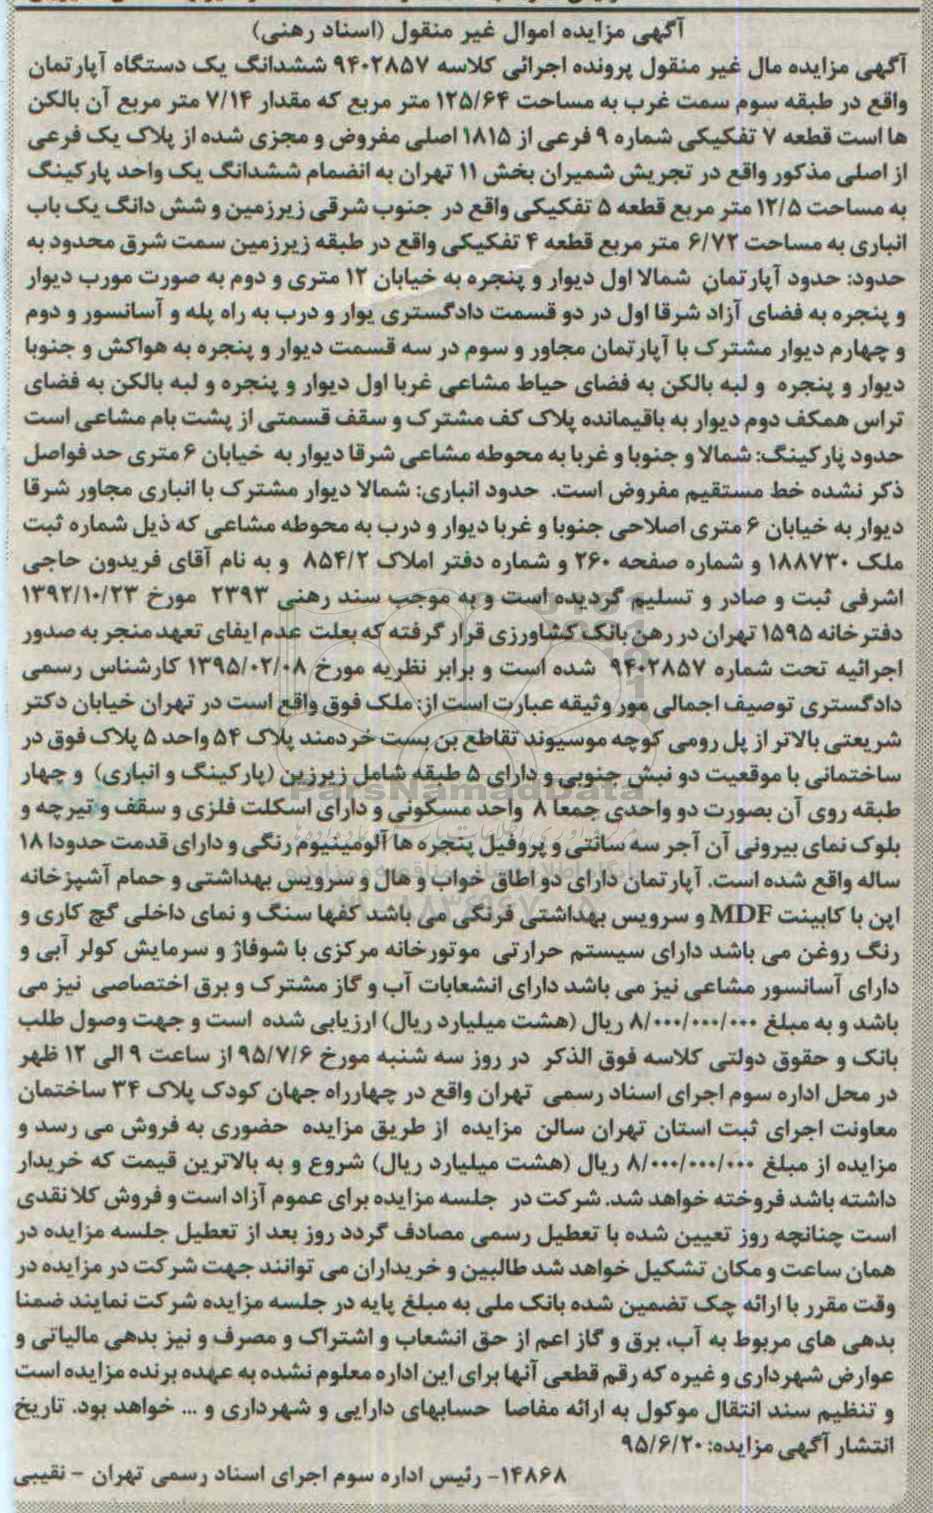 آگهی مزایده اموال غیر منقول (اسناد رهنی)
آگهی مزایده مال غیر منقول پرونده اجرائی کلاسه ۹۴۰۲۸۵۷ ششدانگ یک دستگاه آپارتمان
واقع در طبقه سوم سمت غرب به مساحت ۱۲۵/۶۴ متر مربع که مقدار ۷/۱۴ متر مربع آن بالکن
ها است قطعه ۷ تفکیکی شماره ۹ فرعی از ۱۸۱۵ اصلی مفروض و مجزی شده از پلاک یک فرعی
از اصلی مذکور واقع در تجریش شمیران بخش ۱۱ تهران به انضمام ششدانگ یک واحد پارکینگ
به مساحت ۱۲/۵ متر مربع قطعه ۵ تفکیکی واقع در جنوب شرقی زیرزمین و شش دانگ یک باب
انباری به مساحت ۶/۷۲ متر مربع قطعه ۴ تفکیکی واقع در طبقه زیرزمین سمت شرق محدود به
حدود: حدود آپارتمان شمالا اول دیوار و پنجره به خیابان ۱۲ متری و دوم به صورت مورب دیوار
و پنجره به فضای آزاد شرقا اول در دو قسمت دادگستری یوار و درب به راه پله و آسانسور و دوم
و چهارم دیوار مشترک با آپارتمان مجاور و سوم در سه قسمت دیوار و پنجره به هواکش و جنوبا
دیوار و پنجره و لبه بالکن به فضای حیاط مشاعی غربا اول دیوار و پنجره و لبه بالکن به فضای
تراس همکف دوم دیوار به باقیمانده پلاک کف مشترک و سقف قسمتی از پشت بام مشاعی است
حدود پارکینگ: شمالا و جنوبا و غربا به محوطه مشاعی شرقا دیوار به خیابان ۶ متری حد فواصل
ذکر نشده خط مستقیم مفروض است. حدود انباری: شمالا دیوار مشترک با انباری مجاور شرقا
دیوار به خیابان ۶ متری اصلاحی جنوبا و غربا دیوار و درب به محوطه مشاعی که ذیل شماره ثبت
ملک ۱۸۸۷۳۰ و شماره صفحه ۲۶۰ و شماره دفتر املاک ۸۵۴/۲ و به نام آقای فریدون حاجی
اشرفی ثبت و صادر و تسلیم گردیده است و به موجب سند رهنی ۲۳۹۳ مورخ ۱۳۹۲/۱۰/۲۳
دفترخانه ۱۵۹۵ تهران در رهن بانک کشاورزی قرار گرفته که بعلت عدم ایفای تعهد منجر به صدور
اجرائیه تحت شماره ۹۴۰۲۸۵۷ شده است و برابر نظریه مورخ ۱۳۹۵/۰۲/۰۸ کارشناس رسمی
دادگستری توصیف اجمالی مور وثیقه عبارت است از: ملک فوق واقع است در تهران خیابان دکتر
شریعتی بالاتر از پل رومی کوچه موسیوند تقاطع بن بست خردمند پلاک ۵۴ واحد ۵ پلاک فوق در
ساختمانی با موقعیت دو نبش جنوبی و دارای ۵ طبقه شامل زیرزین (پارکینگ و انباری) و چهار
طبقه روی آن بصورت دو واحدی جمعا ۸ واحد مسکونی و دارای اسکلت فلزی و سقف و تیرچه و
بلوک نمای بیرونی آن آجر سه سانتی و پروفیل پنجره ها آلومینیوم رنگی و دارای قدمت حدودا ۱۸
ساله واقع شده است. آپارتمان دارای دو اطاق خواب و هال و سرویس بهداشتی و حمام آشپزخانه
اپن با کابینت MDF و سرویس بهداشتی فرنگی می باشد کفها سنگ و نمای داخلی گچ کاری و
رنگ روغن می باشد دارای سیستم حرارتی موتورخانه مرکزی با شوفاژ و سرمایش کولر آبی و
دارای آسانسور مشاعی نیز می باشد دارای انشعابات آب و گاز مشترک و برق اختصاصی نیز می
باشد و به مبلغ ۸/۰۰۰/۰۰۰/۰۰۰ ریال (هشت میلیارد ریال) ارزیابی شده است و جهت وصول طلب
بانک و حقوق دولتی کلاسه فوق الذکر در روز سه شنبه مورخ ۹۵/۷/۶ از ساعت ۹ الی ۱۲ ظهر
در محل اداره سوم اجرای اسناد رسمی تهران واقع در چهارراه جهان کودک پلاک ۳۴ ساختمان
معاونت اجرای ثبت استان تهران سالن مزایده از طریق مزایده حضوری به فروش می رسد و
مزایده از مبلغ ۸/۰۰۰/۰۰۰/۰۰۰ ریال (هشت میلیارد ریال) شروع و به بالاترین قیمت که خریدار
داشته باشد فروخته خواهد شد. شرکت در جلسه مزایده برای عموم آزاد است و فروش کلا نقدی
است چنانچه روز تعیین شده با تعطیل رسمی مصادف گردد روز بعد از تعطیل جلسه مزایده در
همان ساعت و مکان تشکیل خواهد شد طالبین و خریداران می توانند جهت شرکت در مزایده در
وقت مقرر با ارائه چک تضمین شده بانک ملی به مبلغ پایه در جلسه مزایده شرکت نمایند ضمنا
بدهی های مربوط به آب، برق و گاز اعم از حق انشعاب و اشتراک و مصرف و نیز بدهی مالیاتی و
عوارض شهرداری و غیره که رقم قطعی آنها برای این اداره معلوم نشده به عهده برنده مزایده است
و تنظیم سند انتقال موکول به ارائه مفاصا حسابهای دارایی و شهرداری و ... خواهد بود. تاریخ
انتشار آگهی مزایده: ۹۵/۶/۲۰
۱۴۸۶۸- رئیس اداره سوم اجرای اسناد رسمی تهران - نقیبی
ParsNamadData